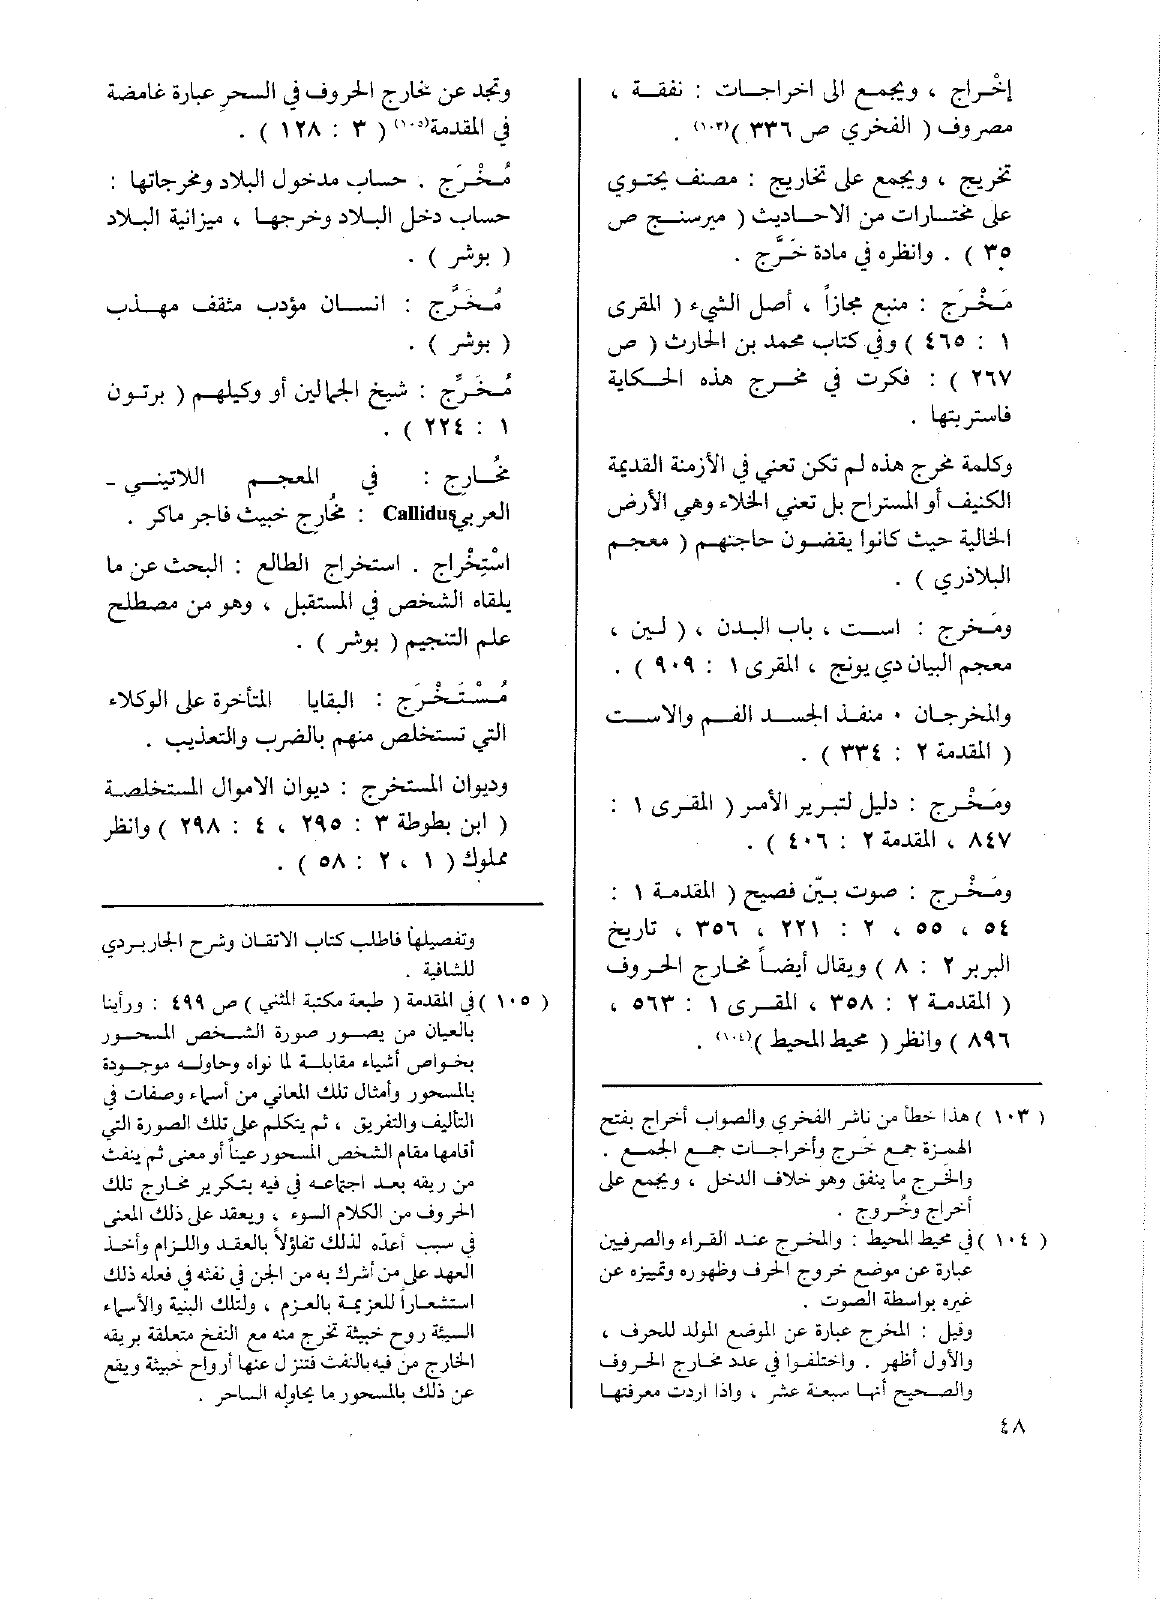 إخْراج ، ويجمع الى اخراجات : نفقة ،
مصروف ( الفخري ص ٣٣٦ )(١٠٣) .
تخريج ، ويجمع على تخاريج : مصنف يحتوي
على مختارات من الاحاديث ( ميرسنج ص
٣٥ ) . وانظره في مادة خَرَّج .
مَخْرَج : منبع مجازاً ، أصل الشيء ( المقرى
١ : ٤٦٥ ) وفي كتاب محمد بن الحارث ( ص
٢٦٧ ) : فكرت في مخرج هذه الحكاية
فاستربتها .
وكلمة مخرج هذه لم تكن تعني في الأزمنة القديمة
الكنيف أو المستراح بل تعني الخلاء وهي الأرض
الخالية حيث كانوا يقضون حاجتهم ( معجم
البلاذري ) .
ومَخرج : است ، باب البدن ، ( لين ،
معجم البيان دي يونج ، المقرى ١ : ٩٠٩ ) .
والمخرجان ٠ منفذ الجسد الفم والاست
( المقدمة ٢ : ٣٣٤ ) .
ومَخْرج : دليل لتبرير الأمر ( المقرى ١ :
٨٤٧ ، المقدمة ٢ : ٤٠٦ ) .
ومَخْرج : صوت بيّن فصيح ( المقدمة ١ :
٥٤ ، ٥٥ ، ٢ : ٢٢١ ، ٣٥٦ ، تاريخ
البربر ٢ : ٨ ) ويقال أيضاً مخارج الحروف
( المقدمة ٢ : ٣٥٨ ، المقرى ١ : ٥٦٣ ،
٨٩٦ ) وانظر ( محيط المحيط )(١٠٤) .
( ١٠٣ ) هذا خطأ من ناشر الفخري والصواب أخراج بفتح
الهمزة جمع خَرج وأخراجات جمع الجمع .
والخرج ما ينفق وهو خلاف الدخل ، ويجمع على
أخراج وخُروج .
( ١٠٤ ) في محيط المحيط : والمخرج عند القراء والصرفيين
عبارة عن موضع خروج الحرف وظهوره وتميزه عن
غيره بواسطة الصوت .
وقيل : المخرج عبارة عن الموضع المولد للحرف ،
والأول أظهر . واختلفوا في عدد مخارج الحروف
والصحيح أنها سبعة عشر ، واذا اردت معرفتها
٤٨
وتجد عن مخارج الحروف في السحرِ عبارة غامضة
في المقدمة(١٠٥) ( ٣ : ١٢٨ ) .
مُخْرَج . حساب مدخول البلاد ومخرجاتها :
حساب دخل البلاد وخرجها ، ميزانية البلاد
( بوشر ) .
مُخَرَّج : انسان مؤدب مثقف مهذب
( بوشر ) .
مُخَرِّج : شيخ الجمالين أو وكيلهم ( برتون
١ : ٢٢٤ ) .
مُخارِج : في المعجم اللاتيني -
العربي Callidus : مخارج خبيث فاجر ماكر .
اسْتِخْراج . استخراج الطالع : البحث عن ما
يلقاه الشخص في المستقبل ، وهو من مصطلح
علم التنجيم ( بوشر ) .
مُسْتَخْرَج : البقايا المتأخرة على الوكلاء
التي تستخلص منهم بالضرب والتعذيب .
وديوان المستخرج : ديوان الاموال المستخلصة
( ابن بطوطة ٣ : ٢٩٥ ، ٤ : ٢٩٨ ) وانظر
مملوك ( ١ ، ٢ : ٥٨ ) .
وتفصيلها فاطلب كتاب الاتقان وشرح الجاربردي
للشافية .
( ١٠٥ ) في المقدمة ( طبعة مكتبة المثني ) ص ٤٩٩ : ورأينا
بالعيان من يصور صورة الشخص المسحور
بخواص أشياء مقابلة لما نواه وحاوله موجودة
بالمسحور وأمثال تلك المعاني من أسماء وصفات في
التأليف والتفريق ، ثم يتكلم على تلك الصورة التي
أقامها مقام الشخص المسحور عيناً أو معنى ثم ينفث
من ريقه بعد اجتماعه في فيه بتكرير مخارج تلك
الحروف من الكلام السوء ، ويعقد على ذلك المعنى
في سبب أعده لذلك تفاؤلاً بالعقد واللزام وأخذ
العهد على من أشرك به من الجن في نفثه في فعله ذلك
استشعاراً للعزيمة بالعزم ، ولتلك البنية والأسماء
السيئة روح خبيثة تخرج منه مع النفخ متعلقة بريقه
الخارج من فيه بالنفث فتنزل عنها أرواح خبيثة ويقع
عن ذلك بالمسحور ما يحاوله الساحر .